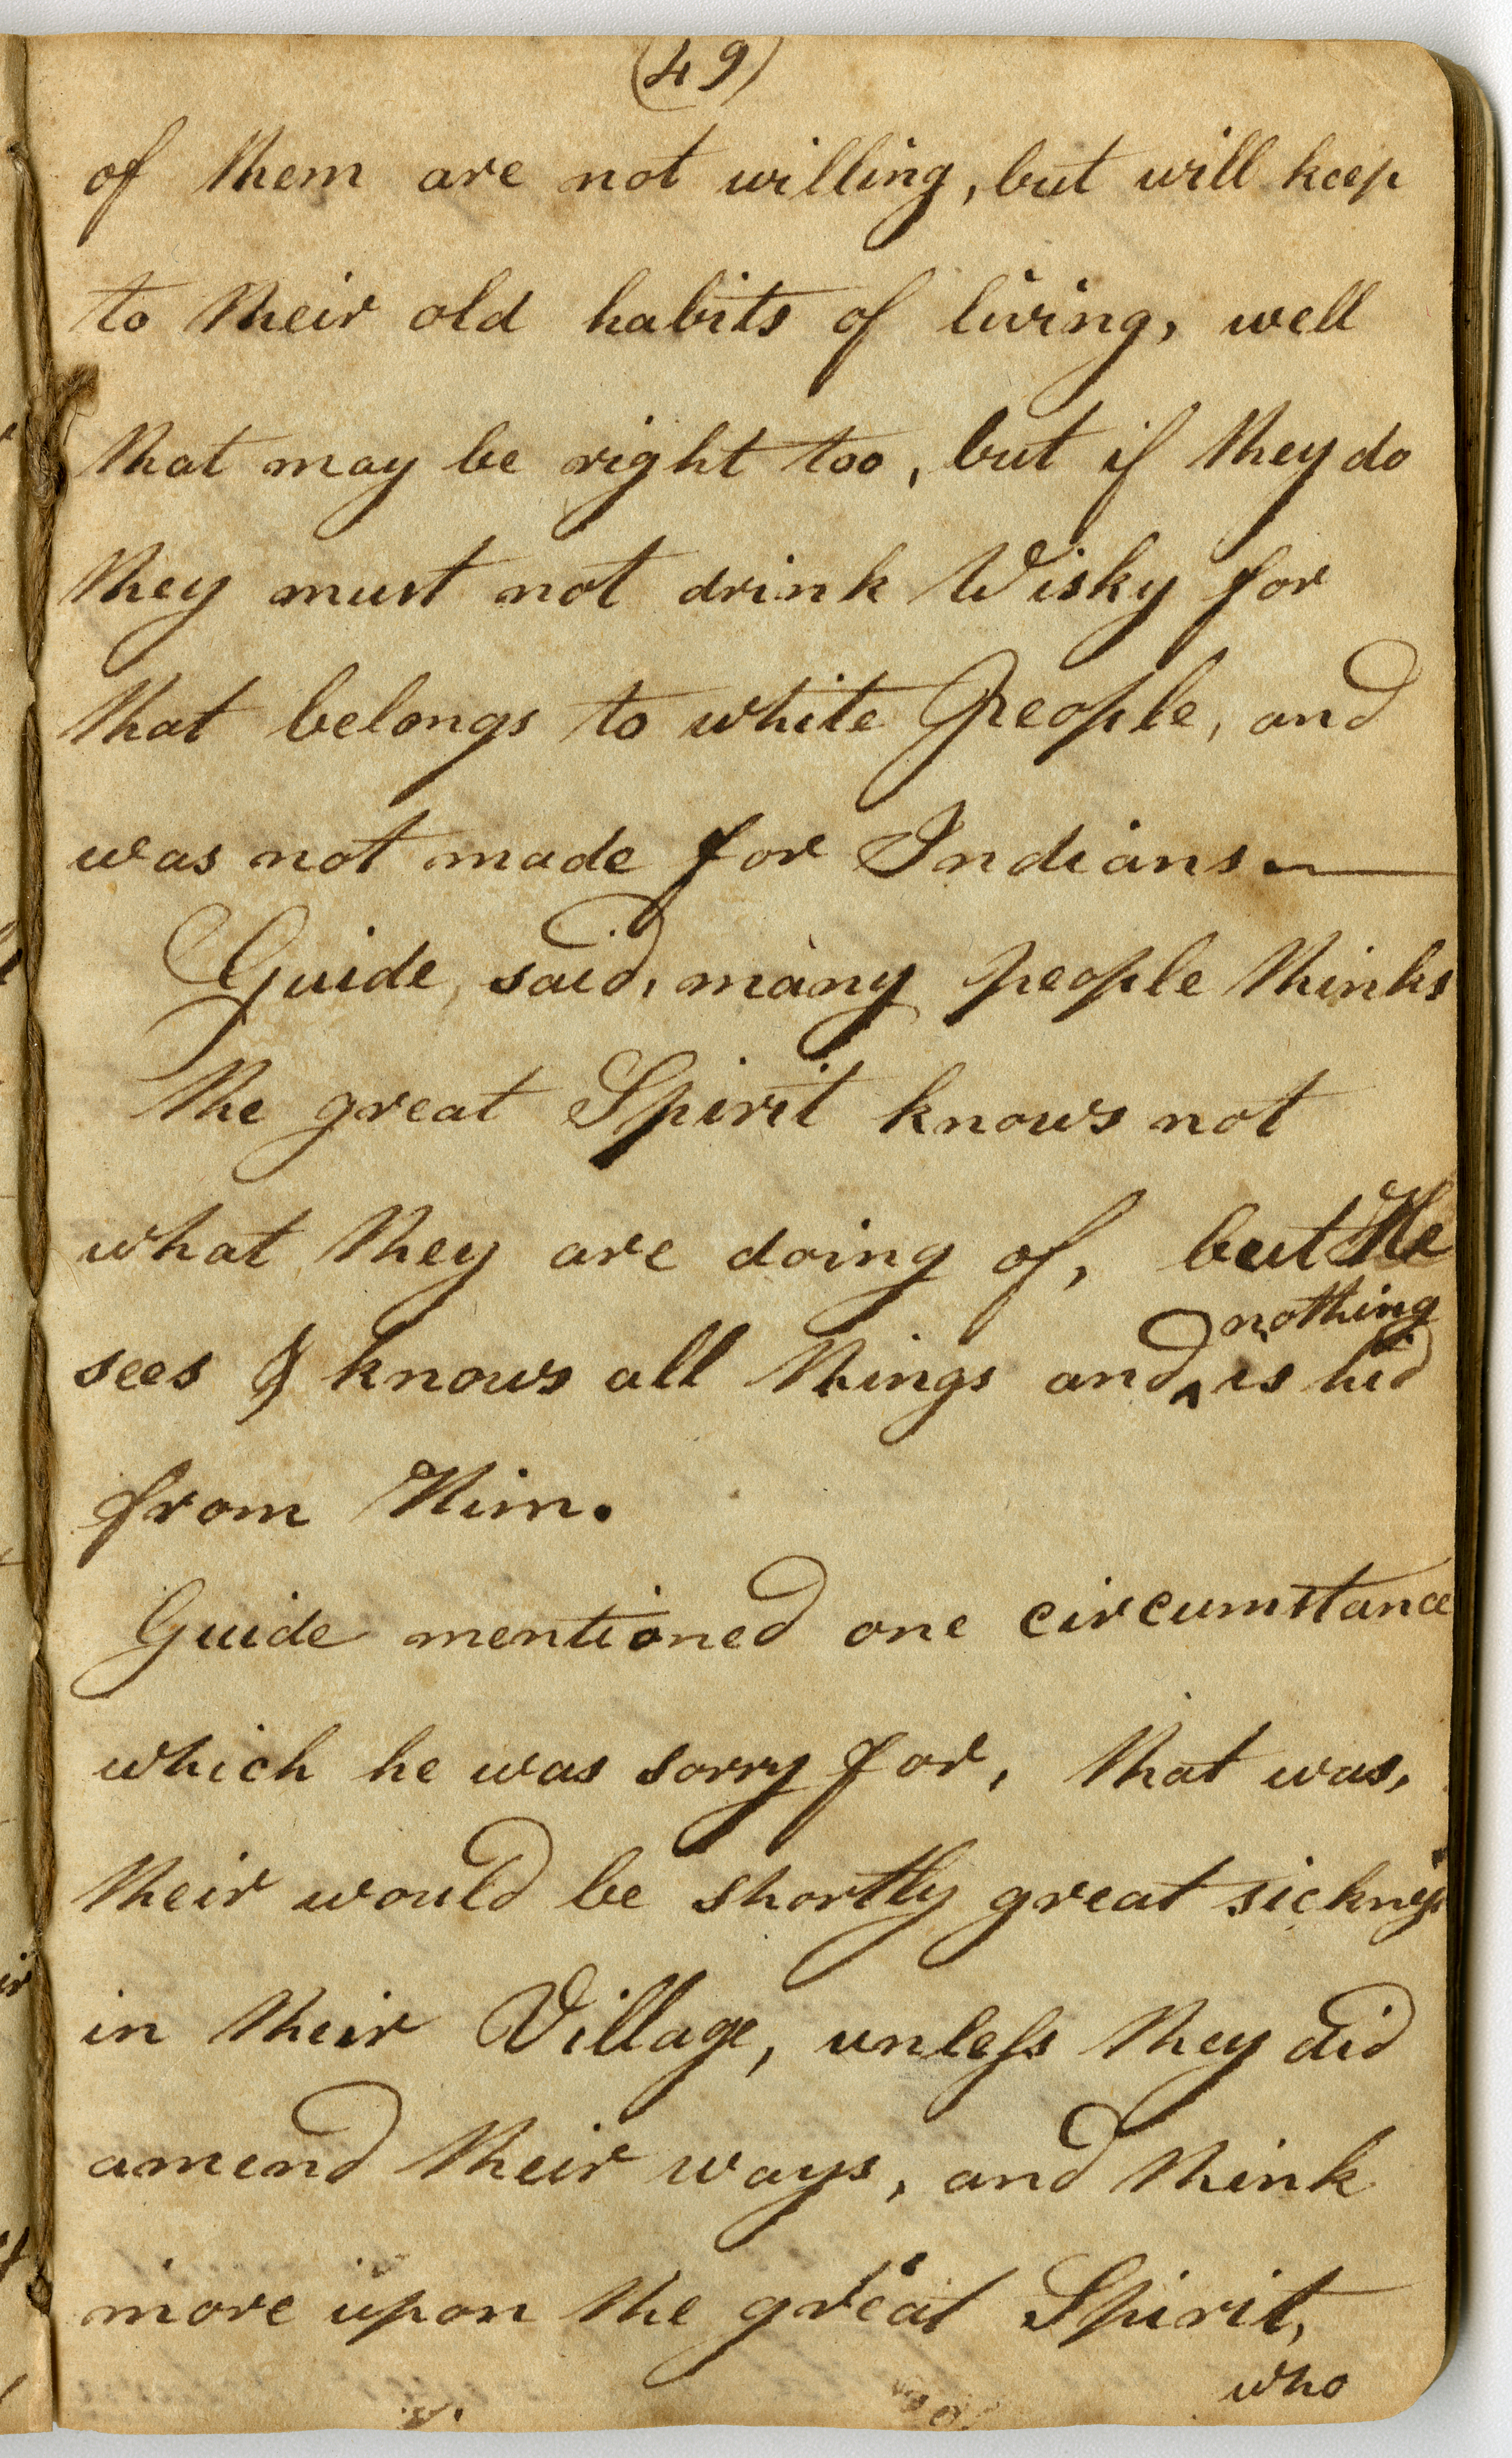 (49)
of them are not willing, but will keep
to their old habits of living, well
that may be right too, but if they do
they must not drink Wisky for
that belongs to white People, and
was not made for Indians.—
Guide, said, many people thinks
the great Spirit knows not
what they are doing of, but He
nothing
sees & knows all things and ‸ is hid
from Him.
Guide mentioned one circumstance
which he was sorry for, that was,
their would be shortly great sickneſs
in their Village, unleſs they did
amend their ways, and think
more upon the great Spirit,
who